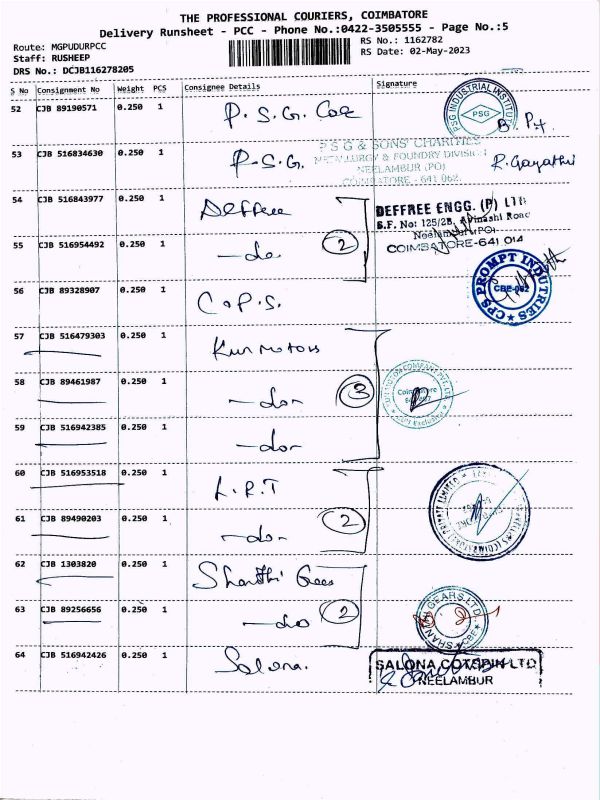 THE PROFESSIONAL COURIERS, COIMBATORE
Delivery Runsheet - PCC - Phone No.:0422-3505555 - Page No.:5
Route: MGPUDURPCC
RS No.: 1162782
Staff: RUSHEEP
RS Date: 02-May-2023
DRS No.: DCJB116278205
S No Consignment No Weight PCS Consignee Details Signature
52 CJB 89190571 0.250 1 P.S.G. Coe
PSG INDUSTRIAL INSTITUTE
PSG
53 CJB 516834630 0.250 1 P.S.G.
P S G & SONS' CHARITIES
METALLURGY & FOUNDRY DIVISION
NEELAMBUR (PO)
COIMBATORE - 641 062.
R. Gayathri
54 CJB 516843977 0.250 1 Deffree
DEFFREE ENGG. (P) LTD
S.F. No: 125/2B, Avinashi Road
Neelambur (PO)
COIMBATORE-641 014
55 CJB 516954492 0.250 1 -do- 2
56 CJB 89328907 0.250 1 C.P.S.
CPS PROMPT INDUTRIES
CBE-062
57 CJB 516479303 0.250 1 Kun Motors
58 CJB 89461987 0.250 1 -do- 3
Coimbatore
59 CJB 516942385 0.250 1 -do-
60 CJB 516953518 0.250 1 L.R.T
61 CJB 89490203 0.250 1 -do- 2
62 CJB 1303820 0.250 1 Shanthi Gears
63 CJB 89256656 0.250 1 -do- 2
SHANTHI GEARS LTD
CBE
64 CJB 516942426 0.250 1 Salona.
SALONA COTSPIN LTD
NEELAMBUR